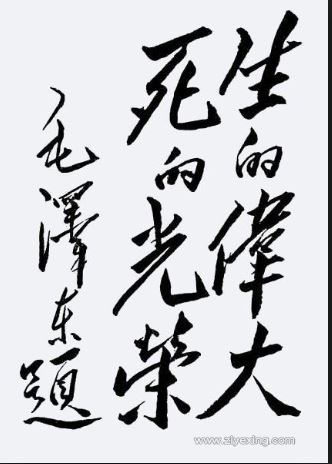 生的偉大
死的光榮
毛澤东題
www.ziyexing.com